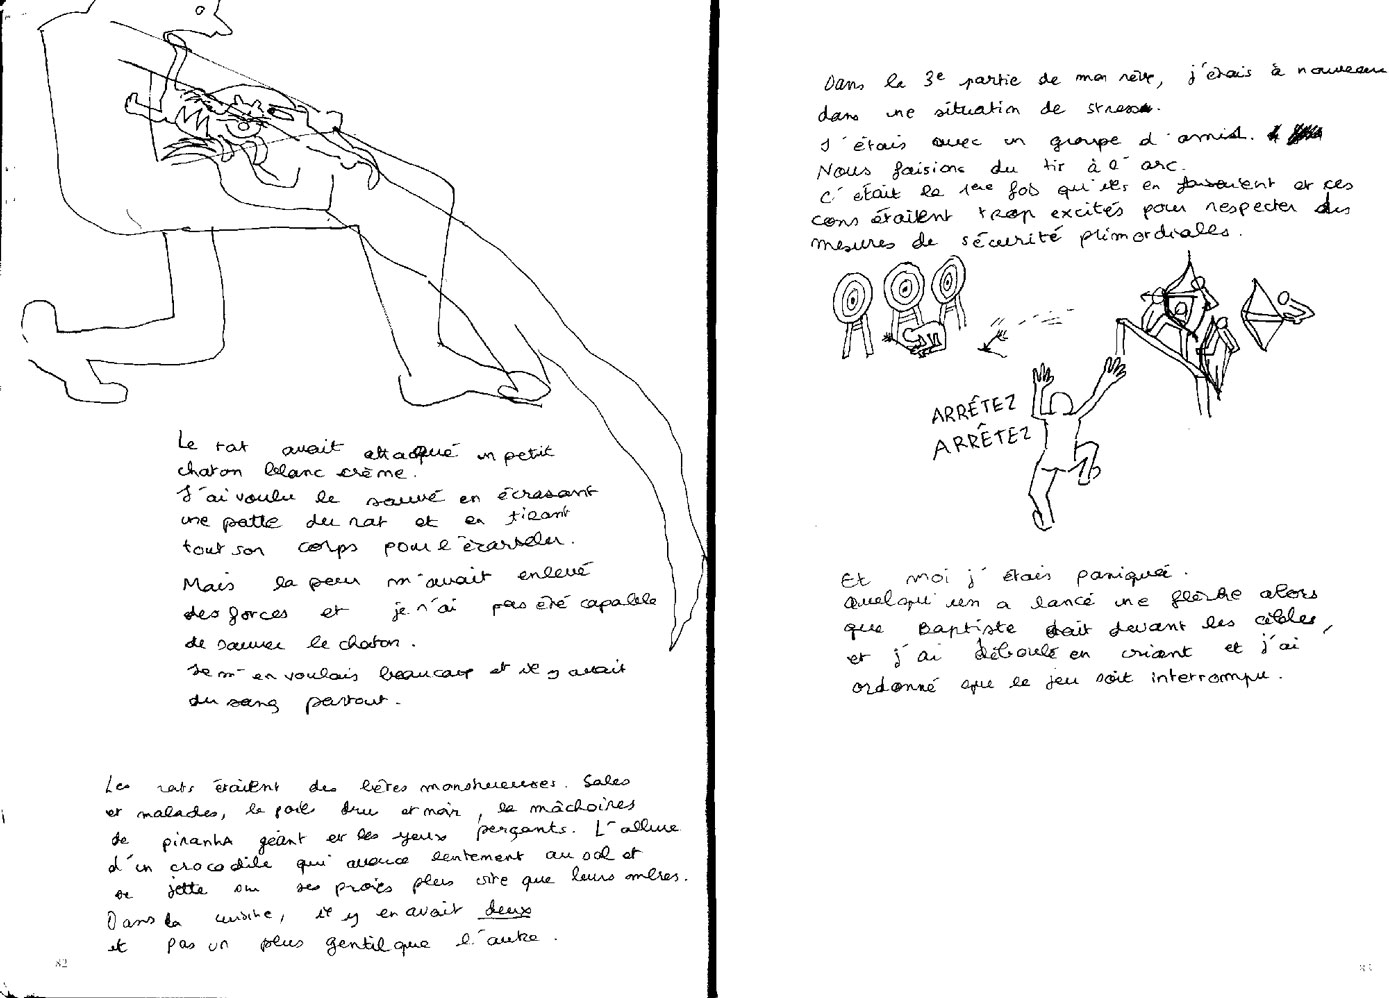 Le rat avait attaqué un petit
chaton blanc crème.
J'ai voulu le sauvé en écrasant
une patte du rat et en tirant
tout son corps pour l'écarteler.
Mais la peur m'avait enlevé
des forces et je n'ai pas été capable
de sauver le chaton.
Je m'en voulais beaucoup et il y avait
du sang partout.
Les rats étaient des bêtes monstrueuses. Sales
et malades, le poil dru et noir, la mâchoires
de piranha géant et les yeux perçants. L'allure
d'un crocodile qui avance lentement au sol et
se jette sur ses proies plus vite que leurs ombres.
Dans la cuisine, il y en avait deux
et pas un plus gentil que l'autre.
82
Dans la 3e partie de mon rêve, j'étais à nouveau
dans une situation de stress.
J'étais avec un groupe d'amis.
Nous faisions du tir à l'arc.
C'était la 1ère fois qu'ils en faisaient et ces
cons étaient trop excités pour respecter des
mesures de sécurité primordiales.
ARRÊTEZ
ARRÊTEZ
Et moi j'étais paniqué.
Quelqu'un a lancé une flèche alors
que Baptiste était devant les cibles,
et j'ai déboulé en criant et j'ai
ordonné que le jeu soit interrompu.